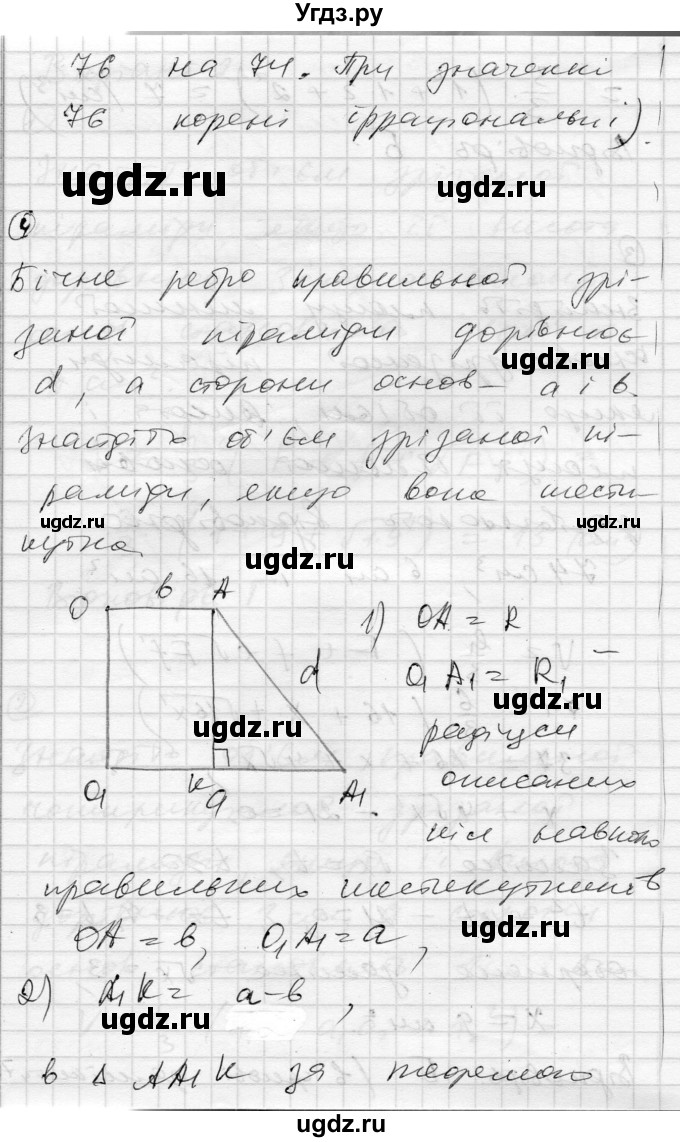 Угдз.ру
76 на 74. При значенні
76 корені ірраціональні).
ugdz.ru ugdz.ru
4
Бічне ребро правильної зрі-
заної піраміди дорівнює
ugdz.ru
d, а сторони основ – a і b.
Знайдіть об'єм зрізаної пі-
раміди, якщо вона шести-
ugdz.ru ugdz.ru
кутна
ugdz.ru
O b A 1) OA = R
d O₁A₁ = R₁ –
ugdz.ru ugdz.ru
радіуси
O₁ K a A₁. описаних
кіл навколо
правильних шестикутників
OA = b, O₁A₁ = a,
ugdz.ru
2) A₁K = a – b,
ugdz.ru ugdz.ru
в Δ AA₁K за теоремою
ugdz.ru